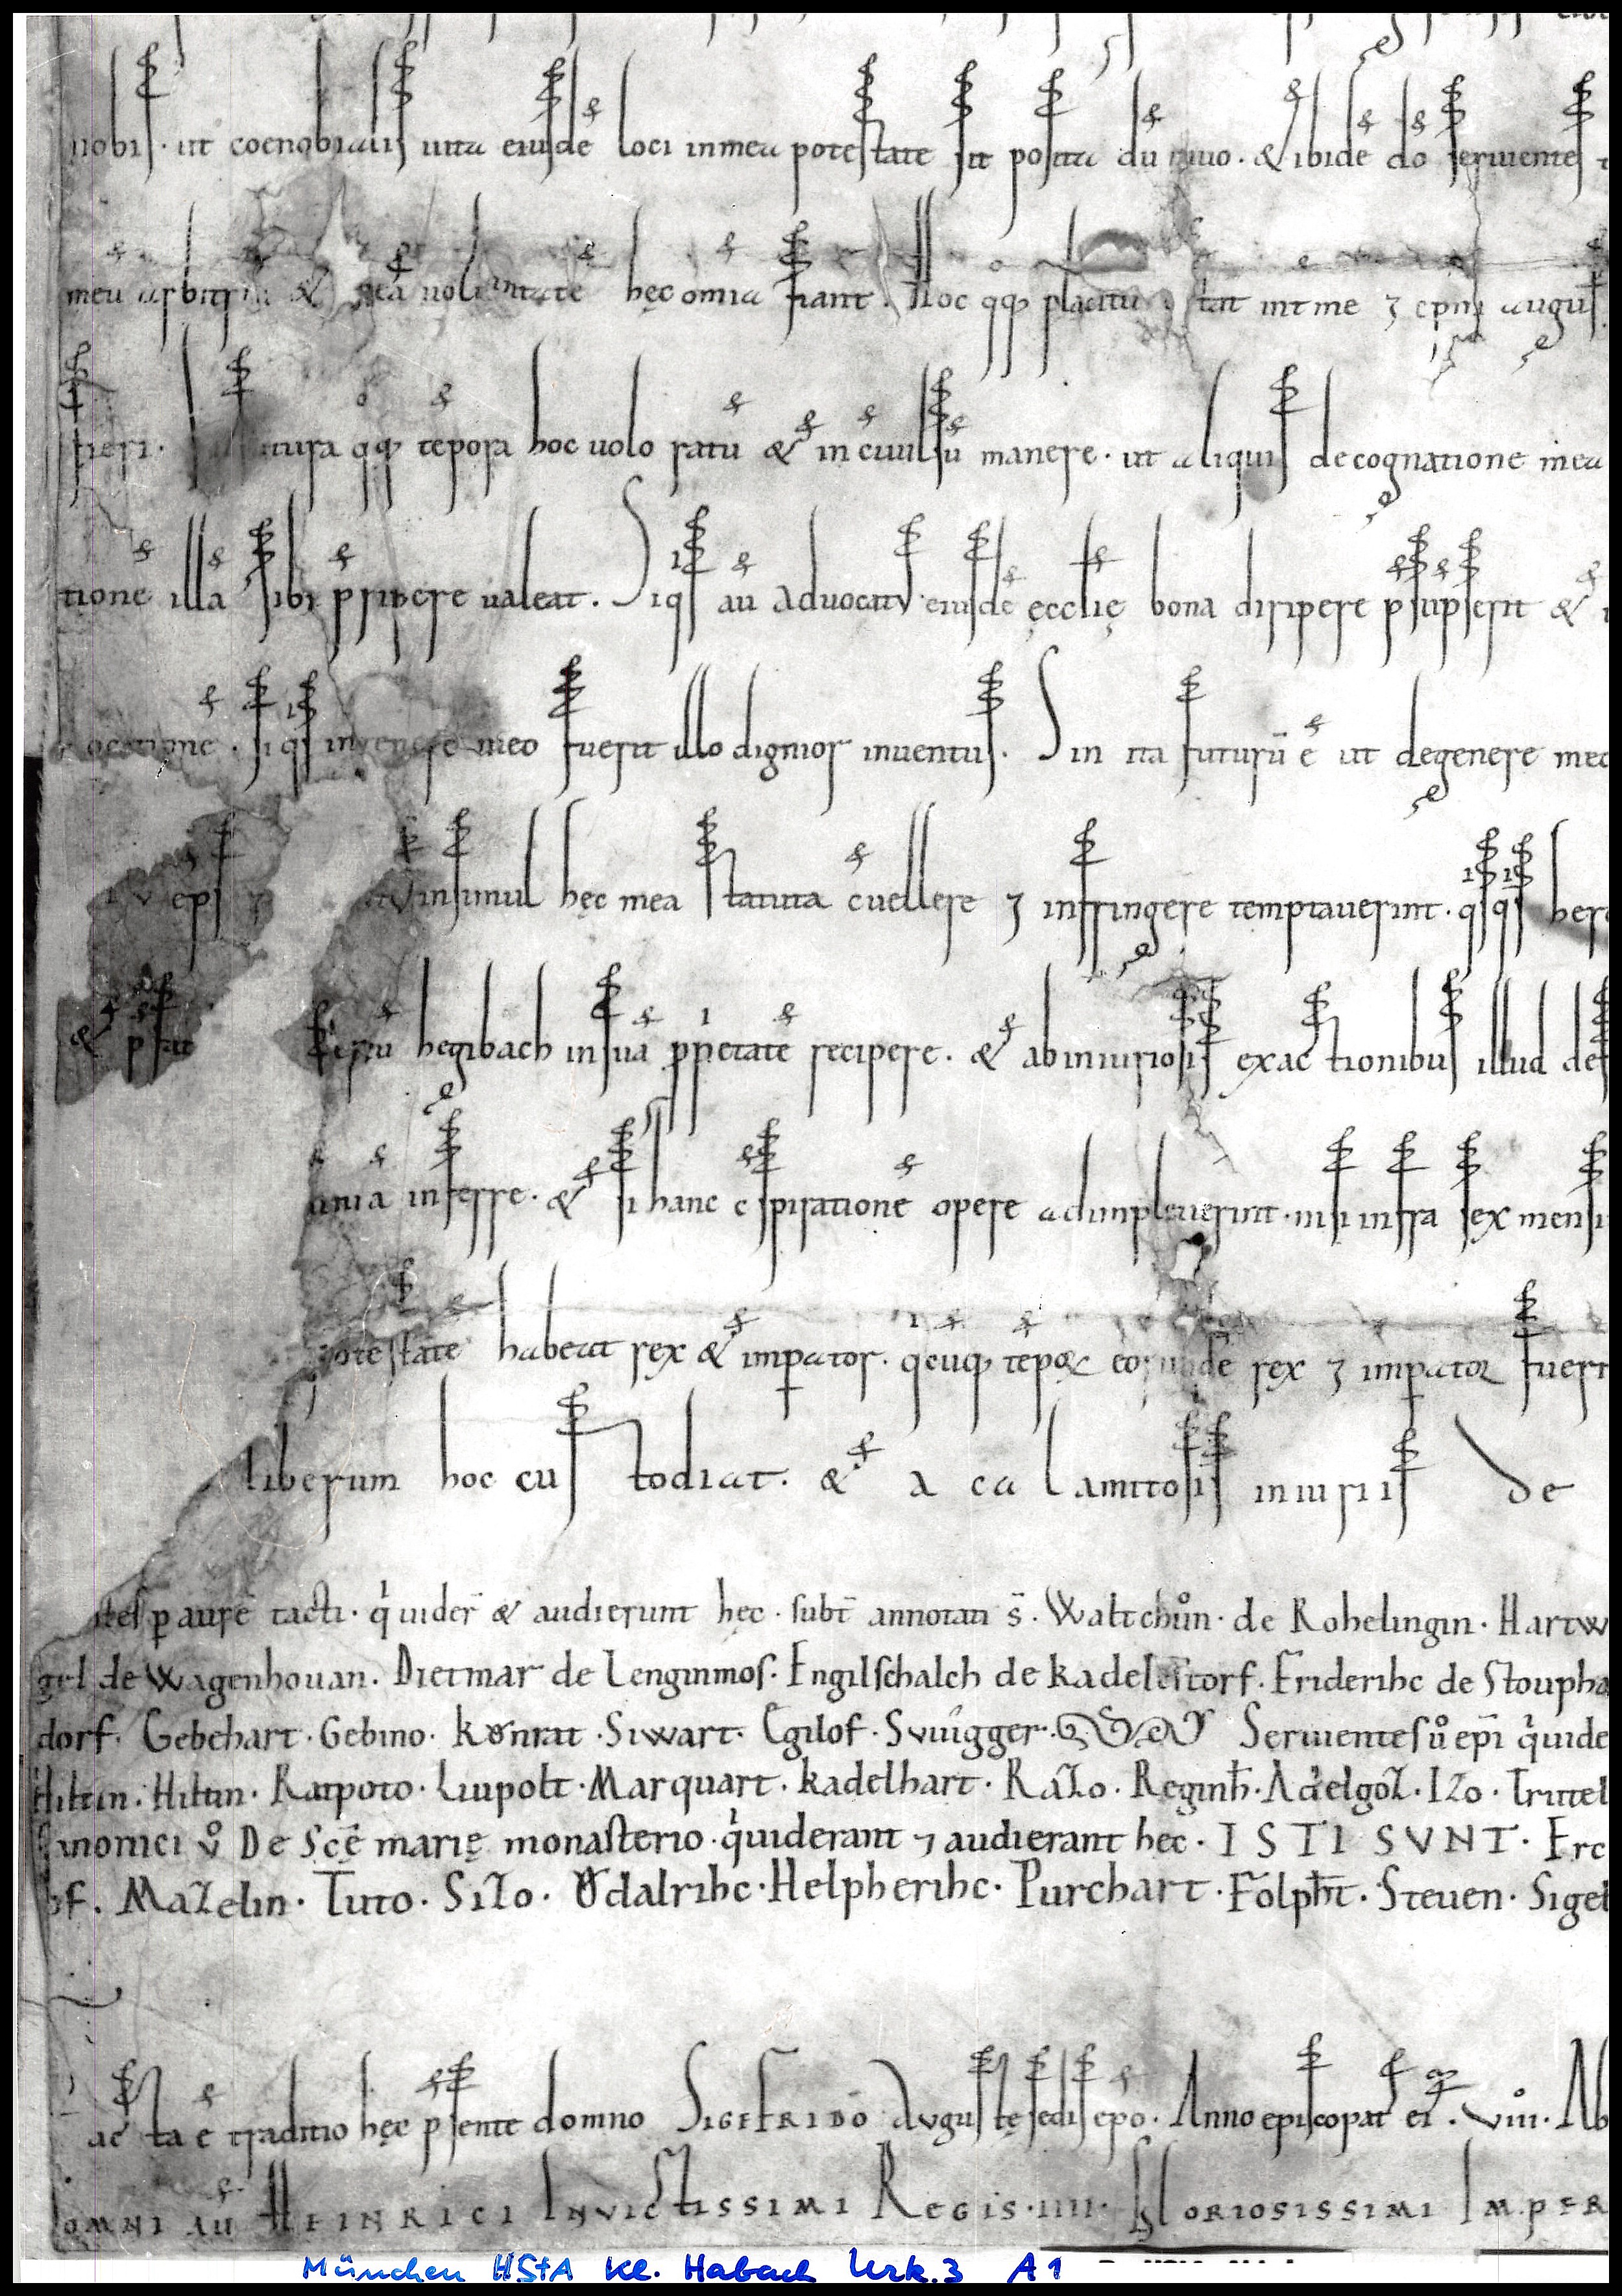 nobis · ut coenobialis uita eiusdē loci in mea potestate sit posita dū uiuo · & ibidē dō seruientes
meū arbitriū & meā uoluntatē hęc om̄ia fiant . Hoc qq; placitū stat int me ⁊ epm̄ august
fieri · futura qq; tēpora hoc uolo ratū & in cuulsū manere · ut aliquis de cognatione mea
tionē illā sibi p̄ripere ualeat . Siqs aū aduocatus eiusdē ęcclię bona diripere p̄sūpserit &
siqs in genere meo fuerit illo dignior inuentus . Sin ita futurū ē ut de genere meo
eps ⁊ insimul hęc mea statuta c̄uellere ⁊ infringere temptauerint · qsqs
& hegibach in suā pp̄rietatē recipere . & ab iniuriosis exactionibus illud
inferre . & si hanc c̄spirationē opere adimpleuerint · nisi infra sex mensi
potestatē habeat rex & impator . qcūq; tēpoꝝ rex ⁊ impator fuer
liberum hoc custodiat . & a calamitosis iniuriis de
p aurē tacti · q'uider̄ & audierunt hęc · subt̄ annotati s̄ · Waltchůn · de Rohelingin · Hartw
gel de Wagenhouan . Dietmar de Lenginmos . Engilschalch de kadelestorf . Friderihc de Stoupha
dorf . Gebehart · Gebino . kůnrat · Siwart . Egilof . Svuigger · Seruientes ů epī q'uide
Hiltin . Hiltin . Ratpoto . Liupolt · Marquart . kadelhart . Razo . Reginh̄ . Adelgoz . Izo . Trutel
anonici ů De Scę̄ marię monasterio · q'uiderant ⁊ audierant hęc · ISTI SVNT · Erc
of . Mazelin · Tuto . Sizo . Ŏdalrihc · Helpherihc . Purchart . Folpht̄ . Steuen . Sigel
acta ē traditio hęc p̄sente domno SIGEFRIDO Augustę sedis ep̄o . Anno episcopat ei . viii . Ab
Domni aū HEINRICI INVICTISSIMI REGIS · IIII · GLORIOSISSIMI IMPER
München HStA Kl. Habach Urk. 3 A 1